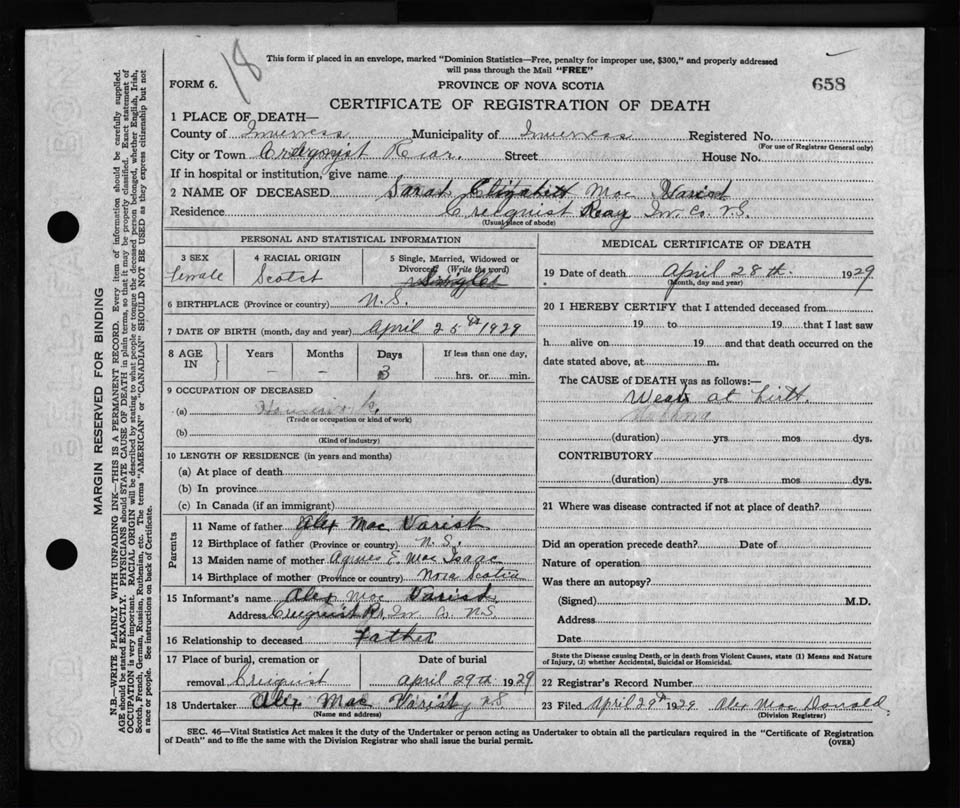 18
This form if placed in an envelope, marked "Dominion Statistics—Free, penalty for improper use, $300," and properly addressed
will pass through the Mail "FREE"
FORM 6. PROVINCE OF NOVA SCOTIA 658
CERTIFICATE OF REGISTRATION OF DEATH
1 PLACE OF DEATH—
County of Inverness Municipality of Inverness Registered No.
(For use of Registrar General only)
City or Town Rear Street House No.
If in hospital or institution, give name
2 NAME OF DECEASED Sarah Elizabeth Mac Varish
Residence Creignish Rear In. Co. N.S.
(Usual place of abode)
PERSONAL AND STATISTICAL INFORMATION
3 SEX 4 RACIAL ORIGIN 5 Single, Married, Widowed or
Divorced (Write the word)
Female Scotch Single
6 BIRTHPLACE (Province or country) N.S.
7 DATE OF BIRTH (month, day and year) April 25th 1929
8 AGE IN Years Months Days If less than one day,
– – 3 hrs. or min.
9 OCCUPATION OF DECEASED
(a)
(Trade or occupation or kind of work)
(b)
(Kind of industry)
10 LENGTH OF RESIDENCE (in years and months)
(a) At place of death
(b) In province
(c) In Canada (if an immigrant)
Parents
11 Name of father Alex Mac Varish
12 Birthplace of father (Province or country) N.S.
13 Maiden name of mother Agnes E. Mac Isaac
14 Birthplace of mother (Province or country) Nova Scotia
15 Informant's name Alex Mac Varish
Address Creignish Rr. In. Co. N.S.
16 Relationship to deceased Father
17 Place of burial, cremation or Date of burial
removal Creignish April 29th 1929
18 Undertaker Alex Mac Varish N.S.
(Name and address)
MEDICAL CERTIFICATE OF DEATH
19 Date of death April 28th 1929
(Month, day and year)
20 I HEREBY CERTIFY that I attended deceased from
19 to 19 that I last saw
h alive on 19 and that death occurred on the
date stated above, at m.
The CAUSE of DEATH was as follows:
Weak at birth.
(duration) yrs mos dys.
CONTRIBUTORY
(duration) yrs mos dys.
21 Where was disease contracted if not at place of death?
Did an operation precede death? Date of
Nature of operation
Was there an autopsy?
(Signed) M.D.
Address
Date
State the Disease causing Death, or in death from Violent Causes, state (1) Means and Nature
of Injury, (2) whether Accidental, Suicidal or Homicidal.
22 Registrar's Record Number
23 Filed April 29th 1929 Alex Mac Donald
(Division Registrar)
SEC. 46—Vital Statistics Act makes it the duty of the Undertaker or person acting as Undertaker to obtain all the particulars required in the "Certificate of Registration
of Death" and to file the same with the Division Registrar who shall issue the burial permit. (OVER)
MARGIN RESERVED FOR BINDING
N.B.—WRITE PLAINLY WITH UNFADING INK—THIS IS A PERMANENT RECORD. Every item of information should be carefully supplied.
AGE should be stated EXACTLY. PHYSICIANS should STATE CAUSE OF DEATH in plain terms, so that it may be properly classified. Exact statement of
OCCUPATION is very important. RACIAL ORIGIN will be described by stating to what people or tongue the deceased person belonged, whether English, Irish,
Scotch, French, German, Russian, Ruthenian, etc. The terms "AMERICAN" or "CANADIAN" SHOULD NOT BE USED as they express citizenship but not
a race or people. See instructions on back of Certificate.